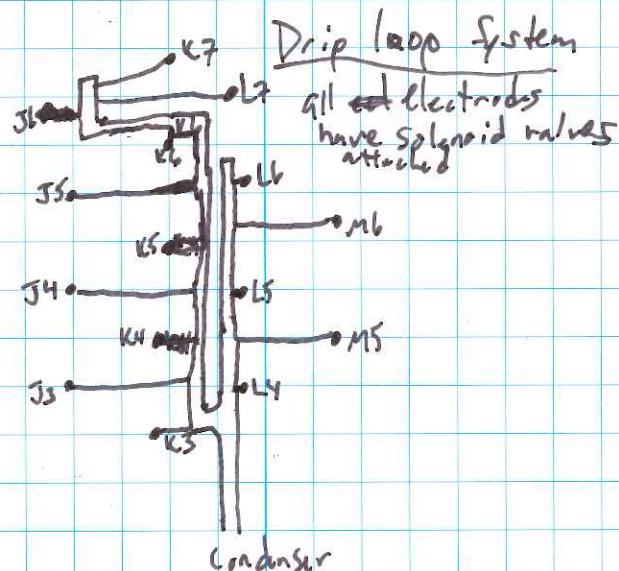 Drip loop System
all electrods
have solgnoid valves
attached
K7
L7
J6
K6
L6
J5
M6
K5
J4
L5
K4
M5
J3
L4
K3
Condenser